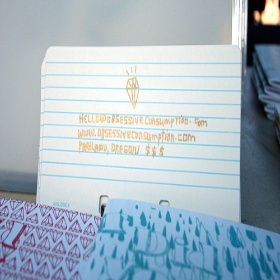 HELLO@OBSESSIVECONSUMPTION.COM
WWW.OBSESSIVECONSUMPTION.COM
PORTLAND, OREGON $ $ $